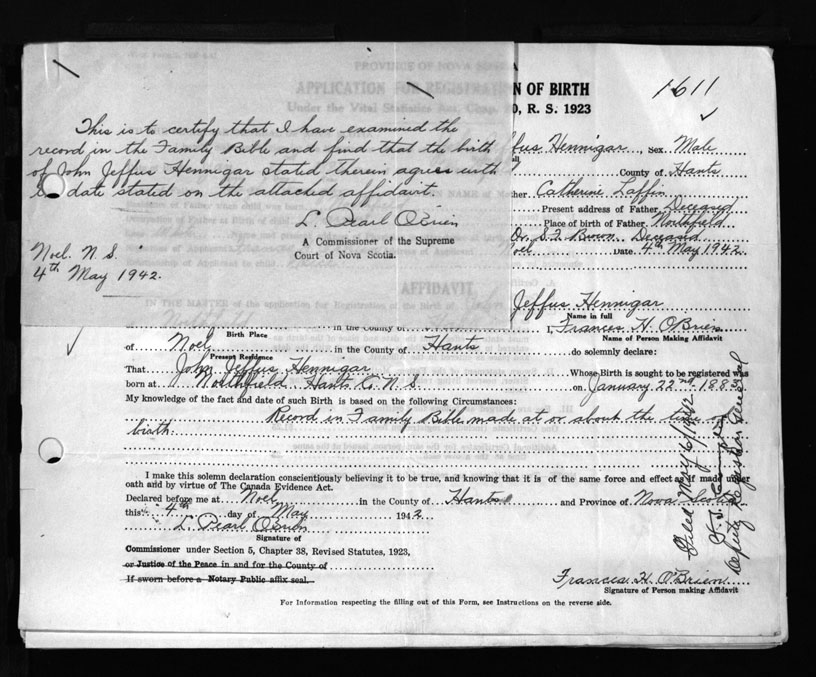 PROVINCE OF NOVA
APPLICATION FOR REGISTRATION OF BIRTH
Under the Vital Statistics Act, Chap. 0, R. S. 1923
1611
This is to certify that I have examined the
record in the Family Bible and find that the birth
of John Jeffus Hennigar stated therein agrees with
date stated on the attached affidavit.
L. Pearl O'Brien
A Commissioner of the Supreme
Court of Nova Scotia.
Noel. N. S.
4th May 1942.
Hennigar, Sex Male
County of Hants
Catherine Laffin
Present address of Father Deceased
Place of birth of Father Northfield
Deceased
Noel Date 4th May 1942.
AFFIDAVIT
IN THE MATTER of the application for Registration of the Birth of
Jeffus Hennigar
Name in full
in the County of I, Frances H. O'Brien
Birth Place Name of Person Making Affidavit
of Noel in the County of Hants do solemnly declare:
Present Residence
That John Jeffus Hennigar Whose Birth is sought to be registered was
born at Northfield Hants Co. N. S. on January 22nd 188
My knowledge of the fact and date of such Birth is based on the following Circumstances:
Record in Family Bible made at or about the time of
birth.
I make this solemn declaration conscientiously believing it to be true, and knowing that it is of the same force and effect as if made under
oath and by virtue of The Canada Evidence Act.
Declared before me at Noel in the County of Hants and Province of Nova Scotia
this 4th day of May 1942
L. Pearl O'Brien
Signature of
Commissioner under Section 5, Chapter 38, Revised Statutes, 1923,
or Justice of the Peace in and for the County of
If sworn before a Notary Public affix seal.
Frances H. O'Brien
Signature of Person making Affidavit
For Information respecting the filling out of this Form, see Instructions on the reverse side.
Filed May 6/1942
Deputy Registrar General